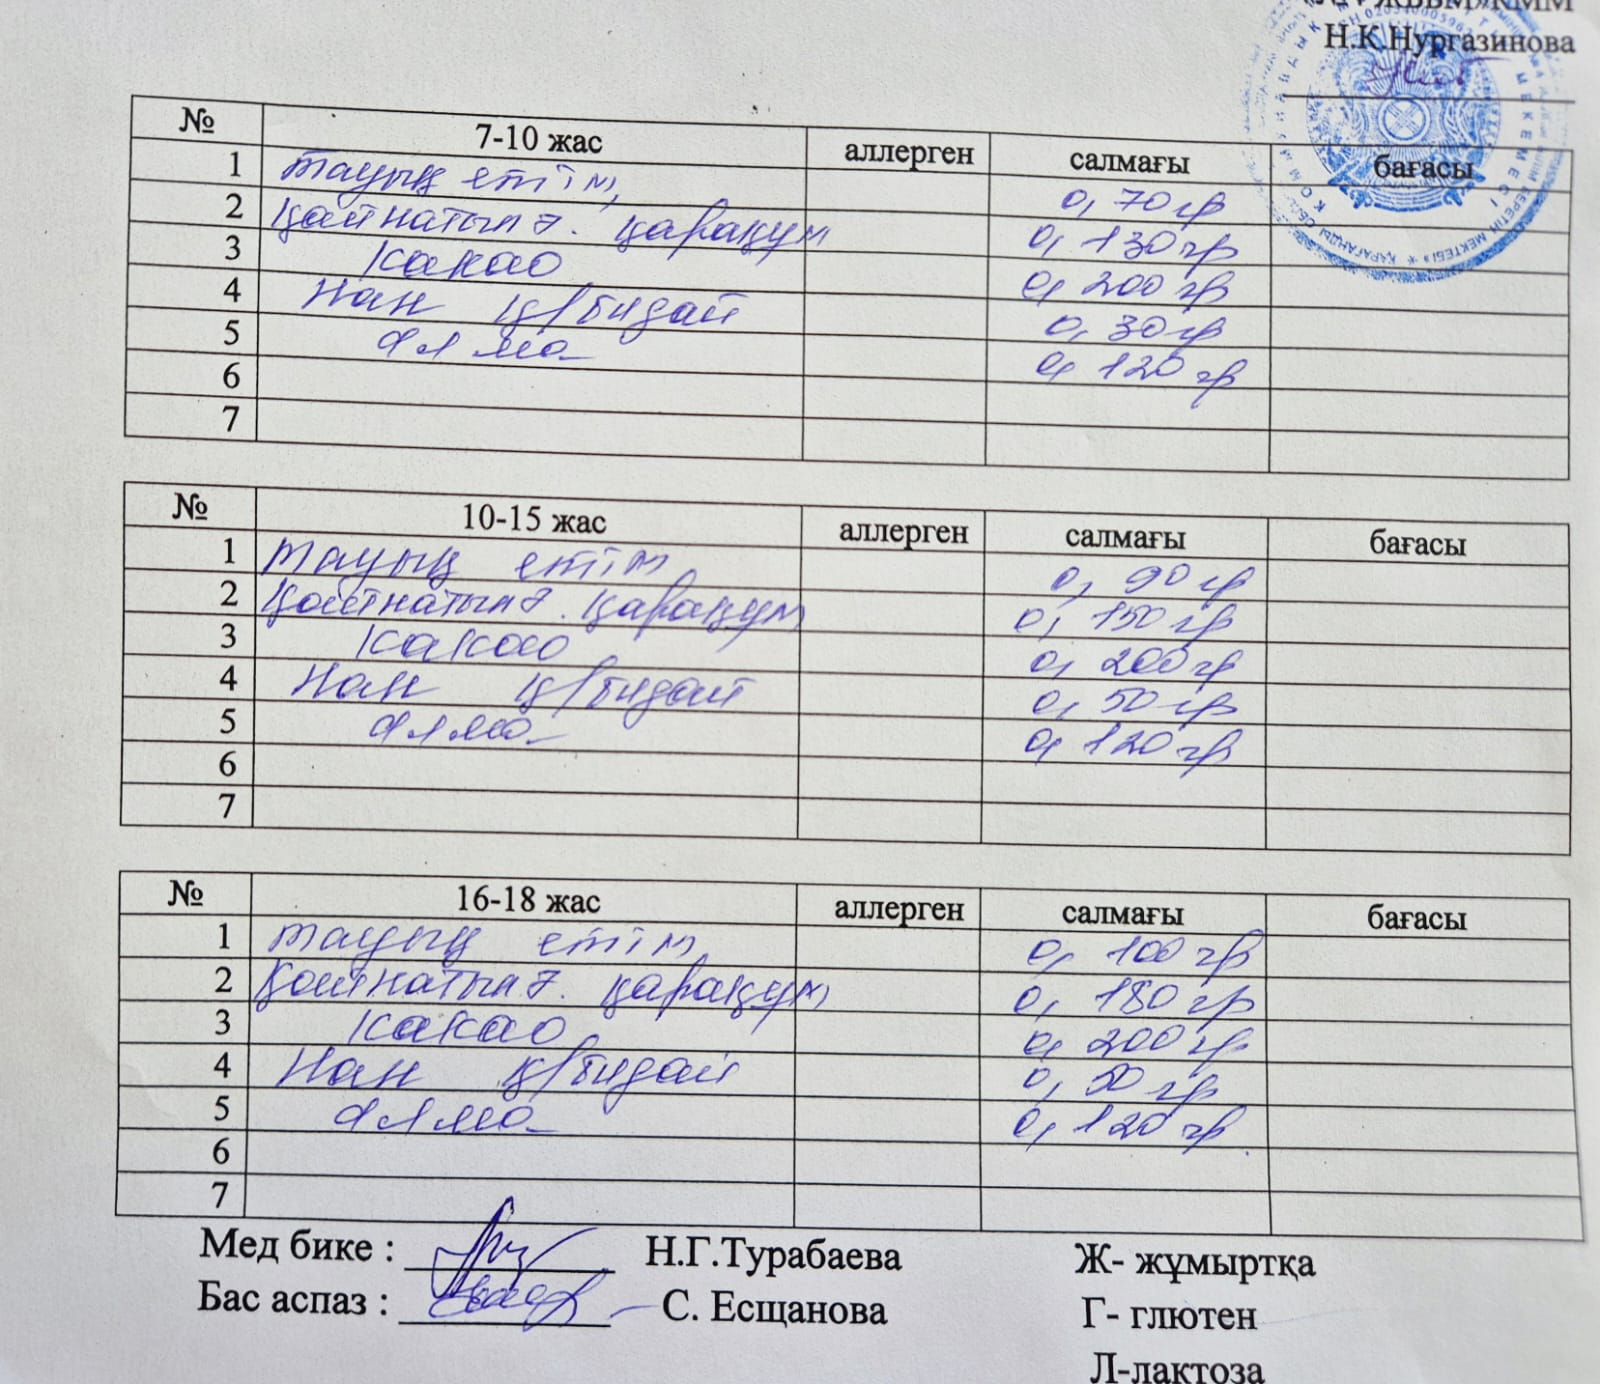 ЖББМ»КММ
Н.К.Нургазинова
№ 7-10 жас аллерген салмағы бағасы
1 тауық етім 0, 70 гр
2 қайнатылғ. қарақұм 0, 130 гр
3 какао 0, 200 гр
4 Нан қ/бидай 0, 30 гр
5 алма 0, 120 гр
6
7
№ 10-15 жас аллерген салмағы бағасы
1 тауық етім 0, 90 гр
2 қайнатылғ. қарақұм 0, 150 гр
3 какао 0, 200 гр
4 Нан қ/бидай 0, 50 гр
5 алма 0, 120 гр
6
7
№ 16-18 жас аллерген салмағы бағасы
1 тауық етім 0, 100 гр
2 қайнатылғ. қарақұм 0, 180 гр
3 какао 0, 200 гр
4 Нан қ/бидай 0, 50 гр
5 алма 0, 120 гр
6
7
Мед бике : Н.Г.Турабаева Ж- жұмыртқа
Бас аспаз : С. Есщанова Г- глютен
Л-лактоза